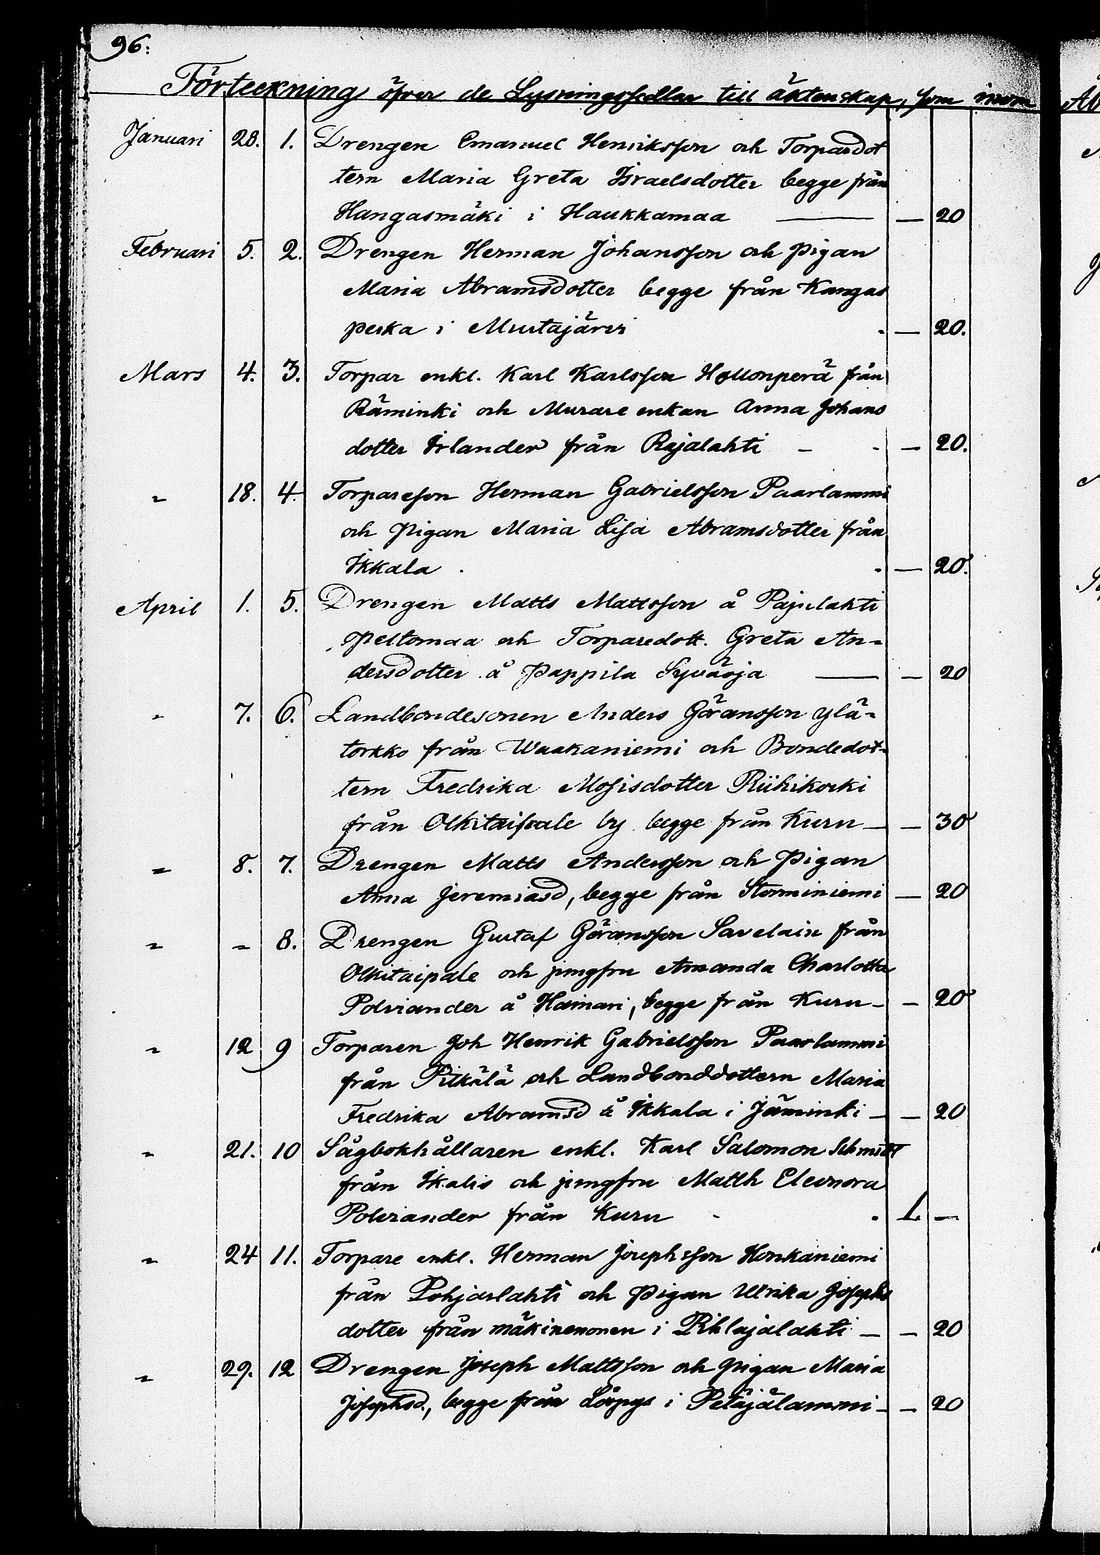 96.
Förteckning öfver de Lysningssedlar till äktenskap, som inom
Januari 28. 1. Drengen Emanuel Henriksson och Torpardot
tern Maria Greta Israelsdotter begge från
Hangasmäki i Haukkamaa — — 20
Februari 5. 2. Drengen Herman Johansson och pigan
Maria Abramsdotter begge från Kangas
peska i Mustajärvi — 20.
Mars 4. 3. Torpar enkl. Karl Karlsson Hollonperä från
Räminki och Murare enkan Anna Johans
dotter Irlander från Rajalahti — — 20.
" 18. 4. Torpareson Herman Gabrielsson Paarlammi
och Pigan Maria Lisa Abramsdotter från
Ikkala . — 20.
April 1. 5. Drengen Matts Mattsson å Pajulahti
Peltomaa och Torparedott. Greta An-
dersdotter å Pappila Syväoja — — 20
" 7. 6. Landbondesonen Anders Göransson Ylä-
torkko från Waakaniemi och Bondedot-
tern Fredrika Mosisdotter Riihikoski
från Olkitaipale by begge från Kuru — — 30
" 8. 7. Drengen Matts Andersson och Pigan
Anna Jeremiasd, begge från Storminiemi — 20
" " 8. Drengen Gustaf Göransson Savelain från
Olkitaipale och jungfru Amanda Charlotta
Polviander å Hainari, begge från Kuru — — 20
" 12 9 Torparen Joh Henrik Gabrielsson Paarlammi
från Pitkälä och Landbonddottern Maria
Fredrika Abramsd å Ikkala i Jäminki — — 20
" 21. 10 Sågbokhållaren enkl. Karl Salomon Schmidt
från Ikalis och jungfru Math Eleonora
Polviander från Kuru - . 1 —
" 24 11. Torpare enkl. Herman Josephsson Honkaniemi
från Pohjaslahti och Pigan Ulrika Josephs
dotter från Mäkinenonen i Pihlajalahti — — 20
" 29. 12 Drengen Joseph Mattsson och Pigan Maria
Josephsd., begge från Löpys i Petäjälammi — — 20